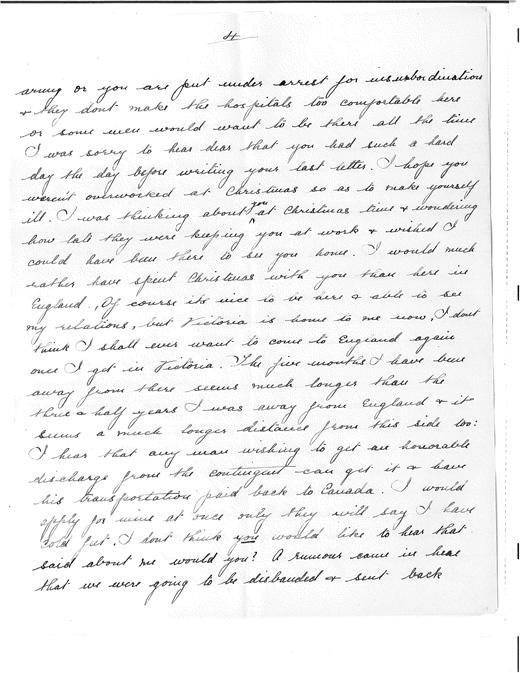 4
army or you are put under arrest for insubordination
& they dont make the hospitals too comfortable here
or some men would want to be there all the time
I was sorry to hear dear that you had such a hard
day the day before writing your last letter. I hope you
weren't overworked at Christmas so as to make yourself
ill. I was thinking about you at Christmas time & wondering
how late they were keeping you at work & wished I
could have been there to see you home. I would much
rather have spent Christmas with you than here in
England. Of course its nice to be here & able to see
my relations, but Victoria is home to me now, I dont
think I shall ever want to come to England again
once I get in Victoria. The five months I have been
away from there seems much longer than the
three & half years I was away from England & it
seems a much longer distance from this side too:
I hear that any man wishing to get an honorable
discharge from the contingent can get it & have
his transportation paid back to Canada. I would
apply for mine at once only they will say I have
cold feet. I dont think you would like to hear that
said about me would you? A rumour came in here
that we were going to be disbanded & sent back